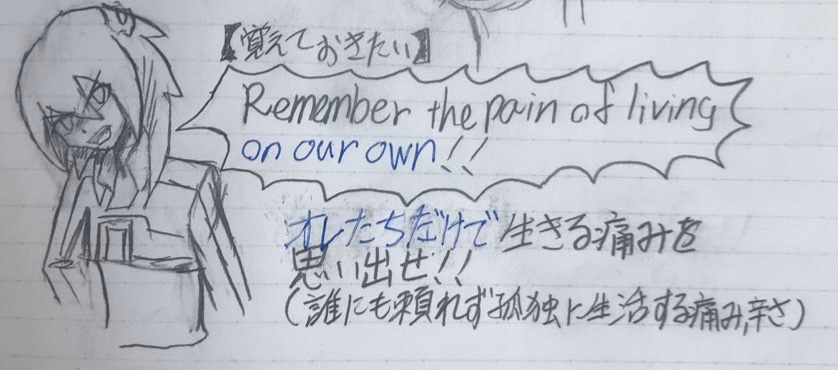 【覚えておきたい】
Remember the pain of living
on our own!!
オレたちだけで生きる痛みを
思い出せ!!
(誰にも頼れず孤独に生活する痛み,辛さ)